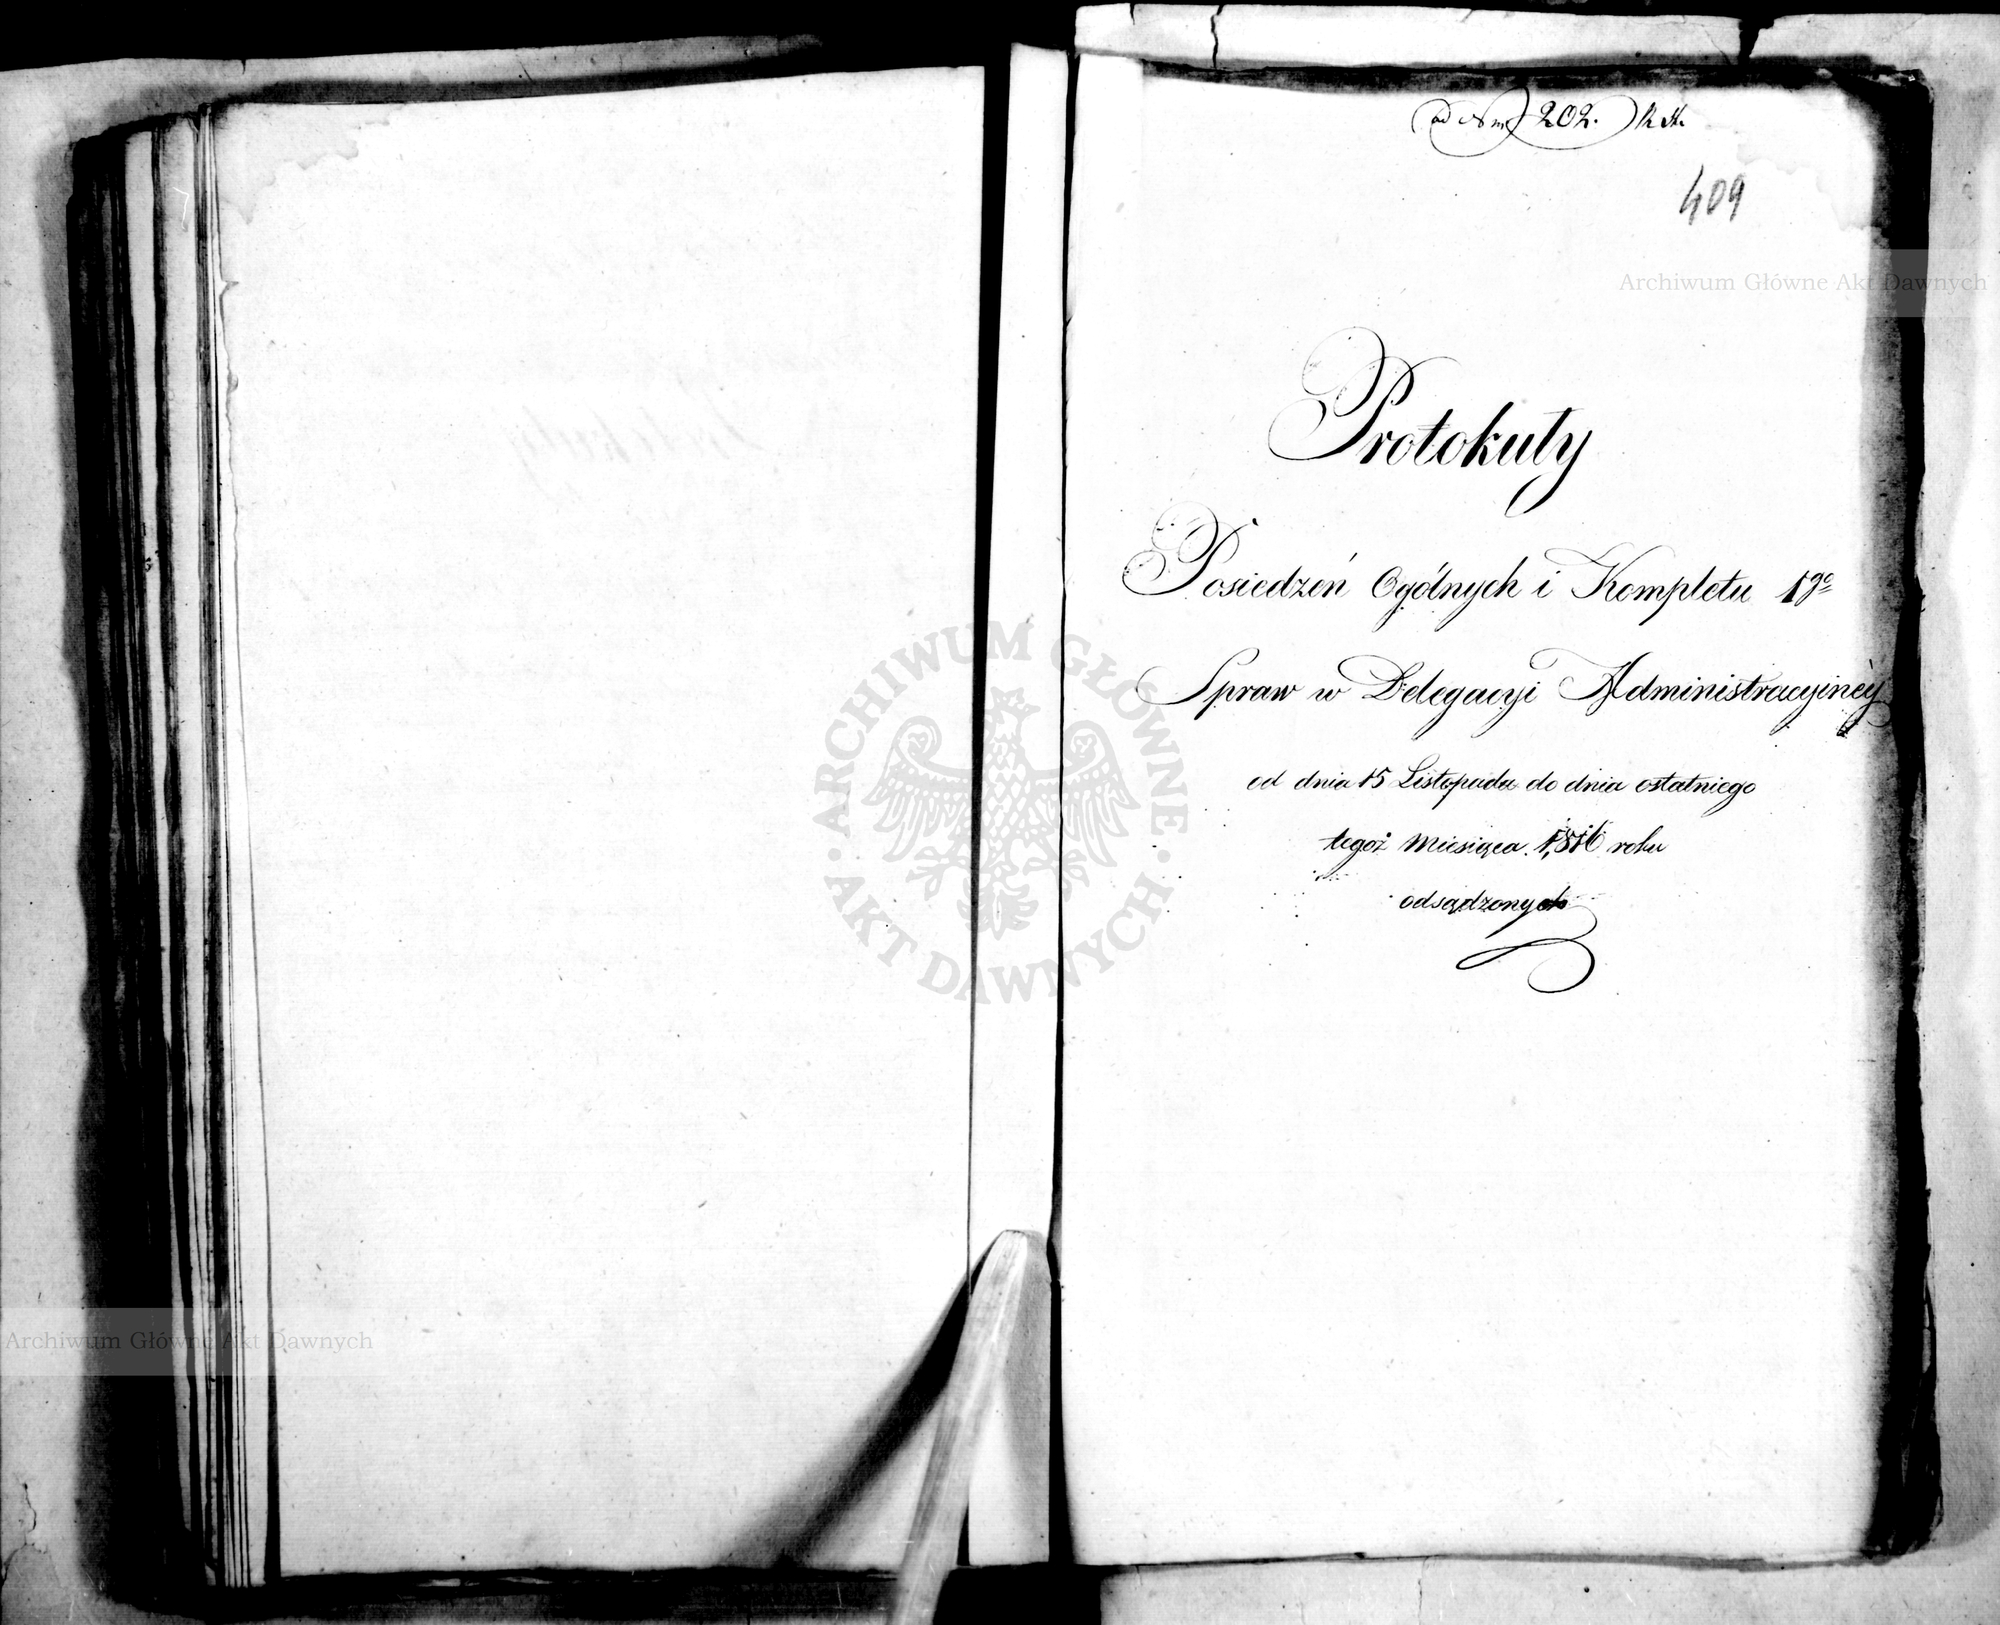 ad Nrm 202.
409
Archiwum Główne Akt Dawnych
Protokuły
Posiedzeń Ogólnych i Kompletu 1go
Spraw w Delegacyi Administracyinéy
od dnia 15 Listopada do dnia ostatniego
tegoż Miesiąca 1816 roku
odsądzonych
ARCHIWUM GŁÓWNE
AKT DAWNYCH
Archiwum Główne Akt Dawnych